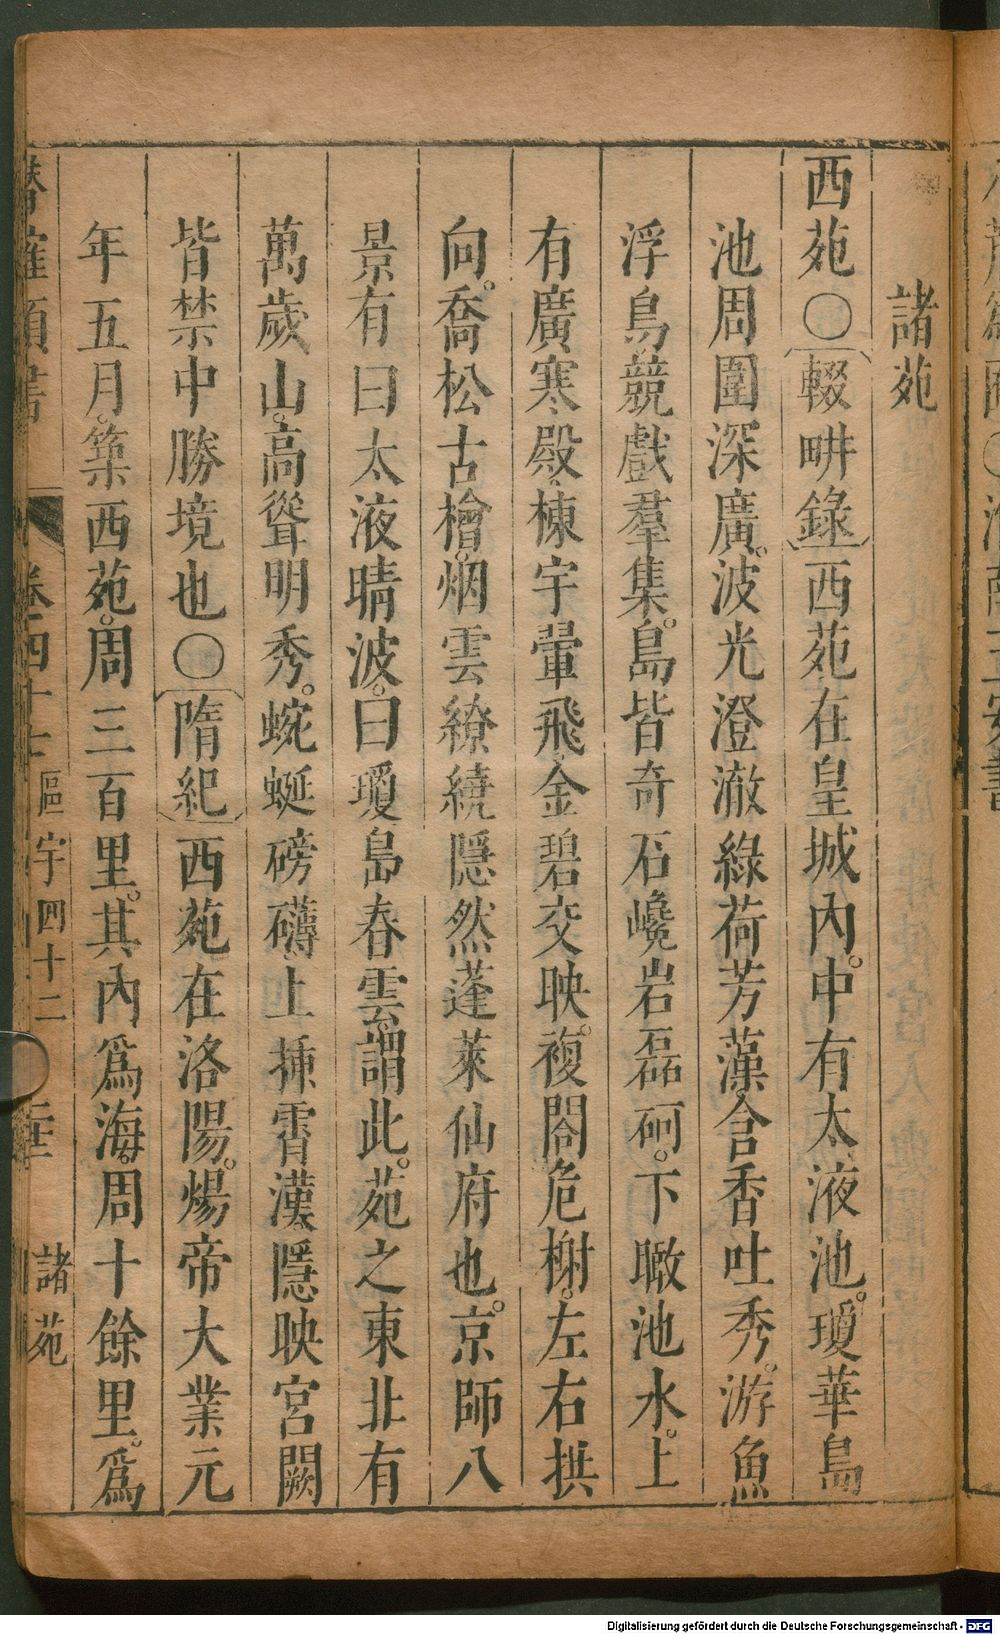 諸苑
西苑○輟畊錄西苑在皇城內。中有太液池。瓊華島
池周圍深廣。波光澄澈綠荷芳藻含香吐秀。游魚
浮鳥競戲羣集。島皆奇石巉岩磊砢。下瞰池水。上
有廣寒殿棟宇翬飛金碧交映。複閣危榭。左右拱
向。喬松古檜。烟雲繚繞隱然蓬萊仙府也。京師八
景有曰太液晴波。曰瓊島春雲謂此。苑之東北有
萬歲山。高聳明秀。蜿蜒磅礴上揷霄漢隱映宮闕
皆禁中勝境也○隋紀西苑在洛陽。煬帝大業元
年五月。築西苑。周三百里。其內爲海。周十餘里。爲
潛確類書 卷四十七 區宇四十二 諸苑
Digitalisierung gefördert durch die Deutsche Forschungsgemeinschaft - DFG